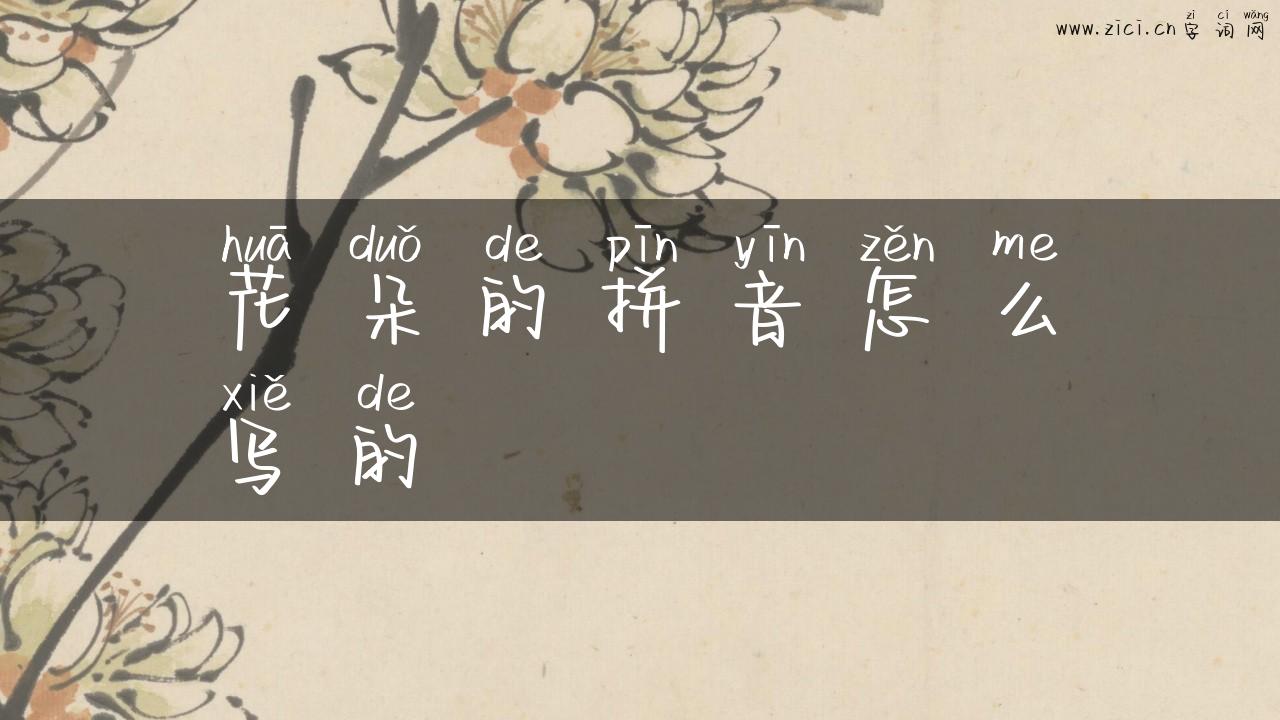 zì cí wǎng
www.zici.cn 字词网
huā duǒ de pīn yīn zěn me
花朵的拼音怎么
xiě de
写的